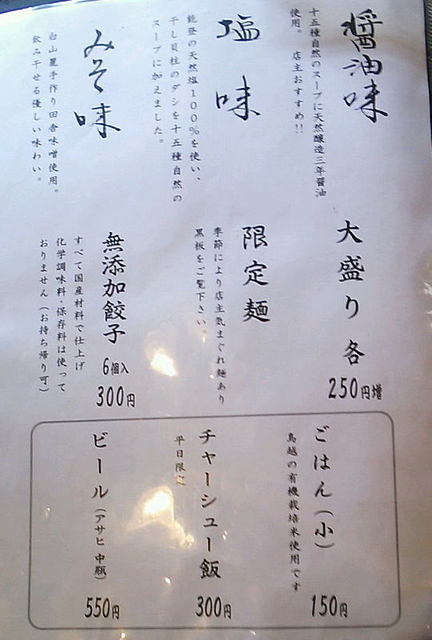 醤油味
十五種自然のスープに天然醸造三年醤油
使用。 店主おすすめ!!
塩味
能登の天然塩100%を使い、
干し貝柱のダシを十五種自然の
スープに加えました。
みそ味
白山麓手作り田舎味噌使用。
飲み干せる優しい味わい。
大盛り 各
250円増
限定麺
季節により店主気まぐれ麺あり
黒板をご覧下さい。
無添加餃子 6個入
300円
すべて国産材料で仕上げ
化学調味料・保存料は使って
おりません(お持ち帰り可)
ごはん(小)
鳥越の有機栽培米使用です
150円
チャーシュー飯
平日限定
300円
ビール(アサヒ 中瓶)
550円